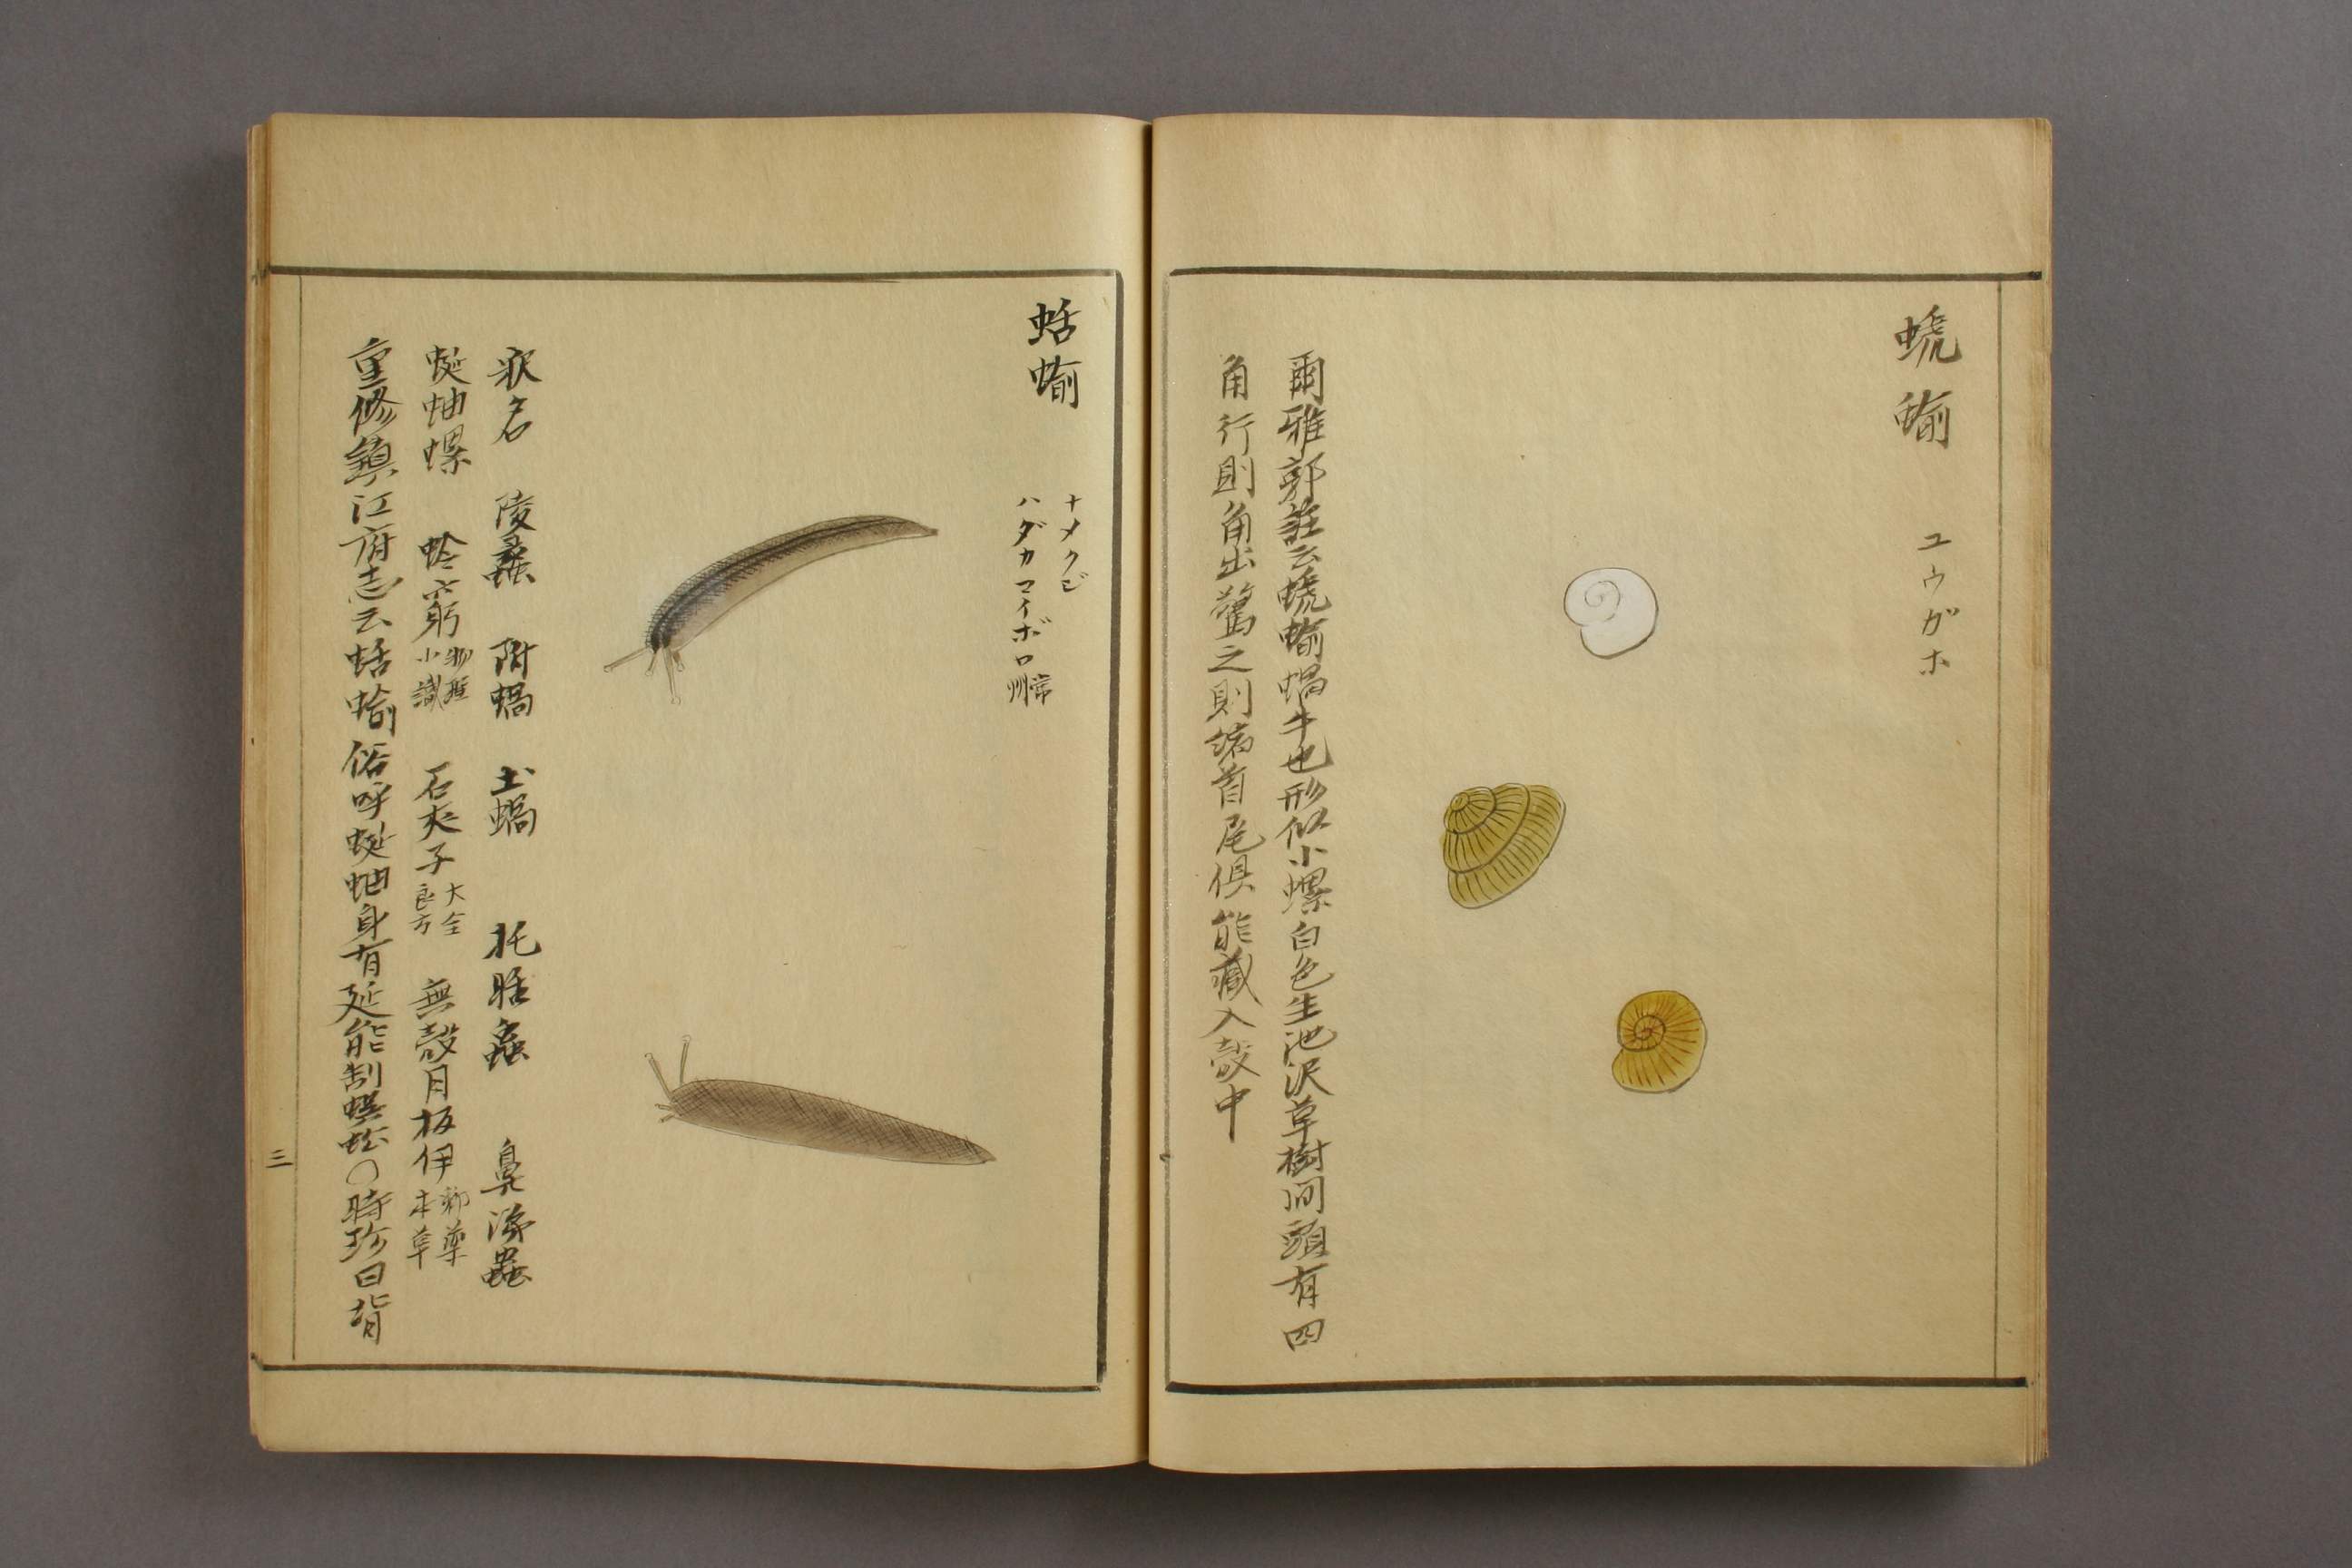 蜿蝓
ユウガホ
爾雅郭註云蜿蝓蝸牛也形似小螺白色生池沢草樹間頭有四
角行則角出驚之則縮首尾俱能藏入殼中
蛞蝓
ナメクジ
ハダカマイボロ常州
釈名 陵蠡 附蝸 土蝸 托胎蟲 鼻涕蟲
蜒蚰螺 蛉穷躬物理小識 石夾子大全良方 無殼月板伊郷薬本草
重修鎮江府志云蛞蝓俗呼蜒蚰身有延能制蜈蚣〇時珍曰背
三